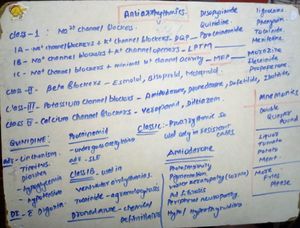 Antiarrhythmics.
Class - I Na⁺ Channel Blockers.
IA - Na⁺ channel blockers + K⁺ channel blockers - DQP
IB - Na⁺ channel blockers + K⁺ channel openers - LPTM
IC - Na⁺ channel Blockers + minimal K⁺ channel activity - MFP
Class-II - Beta Blockers - Esmolol, Bisoprolol, Metoprolol.
Class-III - Potassium Channel Blockers - Amiodarone, Dronedarone, Dofetilide, Ibutilide,
Class IV - Calcium Channel Blockers - Verapamil, Diltiazem.
Disopyramide
Quinidine
Procainamide
Lignocaine
Phenytoin
Tocainide
Mexiletine.
Moricizine
Flecainide
Propafenone.
Mnemonics
Double
Quarter
Pound
Liquor
Tomato
Potato
Mint.
More
Fries
Please
QUINIDINE:
adv - Cinchonism.
- Tinnitus,
diarrhea
- hypoglycemia
- hypotension
DI - ↑ Digoxin
Procainamid
- undergo acetylation
adv - SLE
Class IB used in
ventricular arrhythmias.
Tocainide - agranulocytosis
Dronedarone -
Class Ic - Proarrhythmic so
used only in resistant cases
Amiodarone
Pulmonary
Pigmentation
Peripheral neuropathy
Hypo/Hyperthyroidism